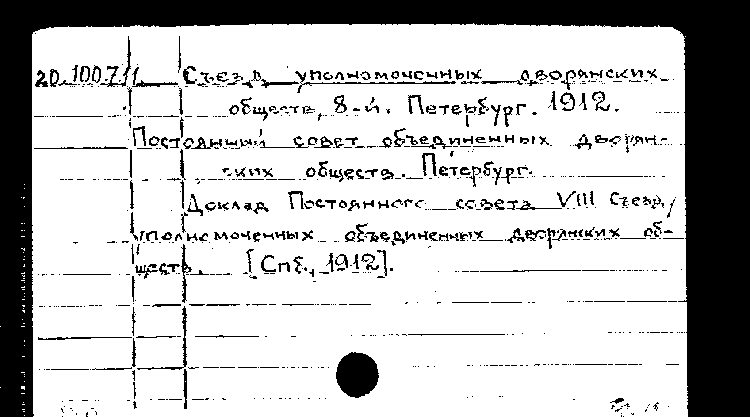 20.100.7.11. Съезд уполномоченных дворянских
обществ, 8-й. Петербург. 1912.
Постоянный совет объединенных дворян-
ских обществ. Петербург.
Доклад Постоянного совета VIII Съезду
уполномоченных объединенных дворянских об-
ществ. [Спб., 1912].